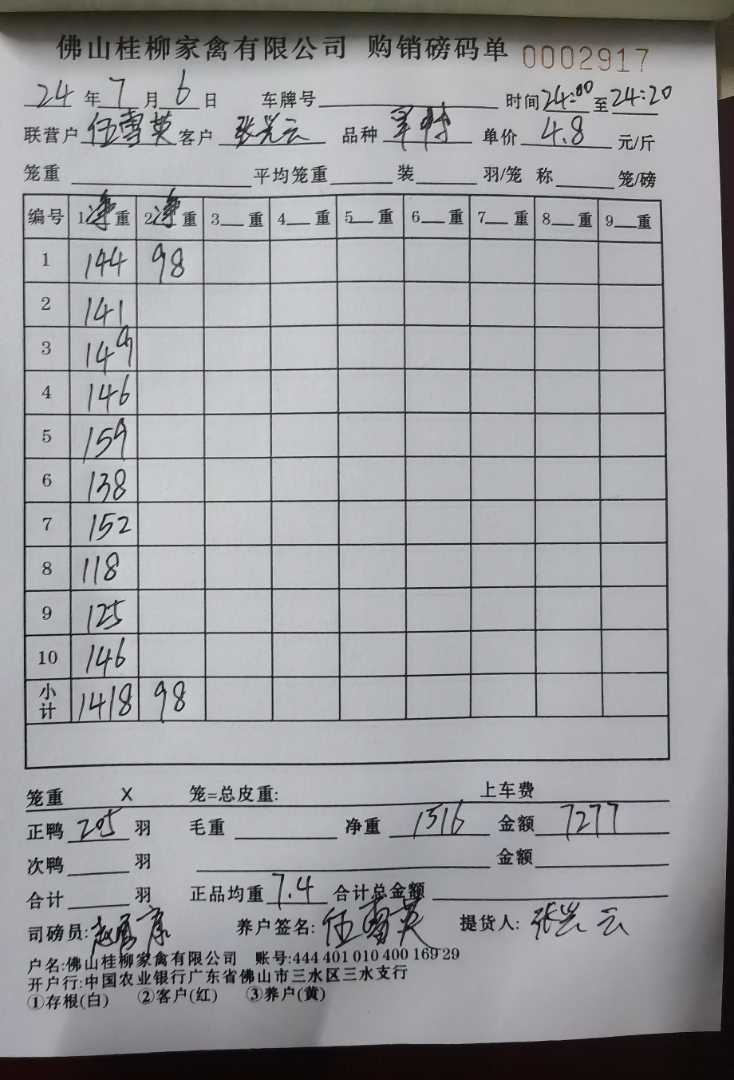 佛山桂柳家禽有限公司 购销磅码单 0002917
24 年 7 月 6 日 车牌号 时间 24:00 至 24:20
联营户 伍雪英 客户 张兴云 品种 单价 4.8 元/斤
笼重 平均笼重 装 羽/笼 称 笼/磅
编号 1净重 2净重 3 重 4 重 5 重 6 重 7 重 8 重 9 重
1 144 98
2 141
3 149
4 146
5 159
6 138
7 152
8 118
9 125
10 146
小计 1418 98
笼重 X 笼=总皮重: 上车费
正鸭 205 羽 毛重 净重 1516 金额 7277
次鸭 羽 金额
合计 羽 正品均重 7.4 合计总金额
司磅员: 养户签名: 伍雪英 提货人: 张兴云
户名:佛山桂柳家禽有限公司 账号:444 401 010 400 169 29
开户行:中国农业银行广东省佛山市三水区三水支行
①存根(白) ②客户(红) ③养户(黄)